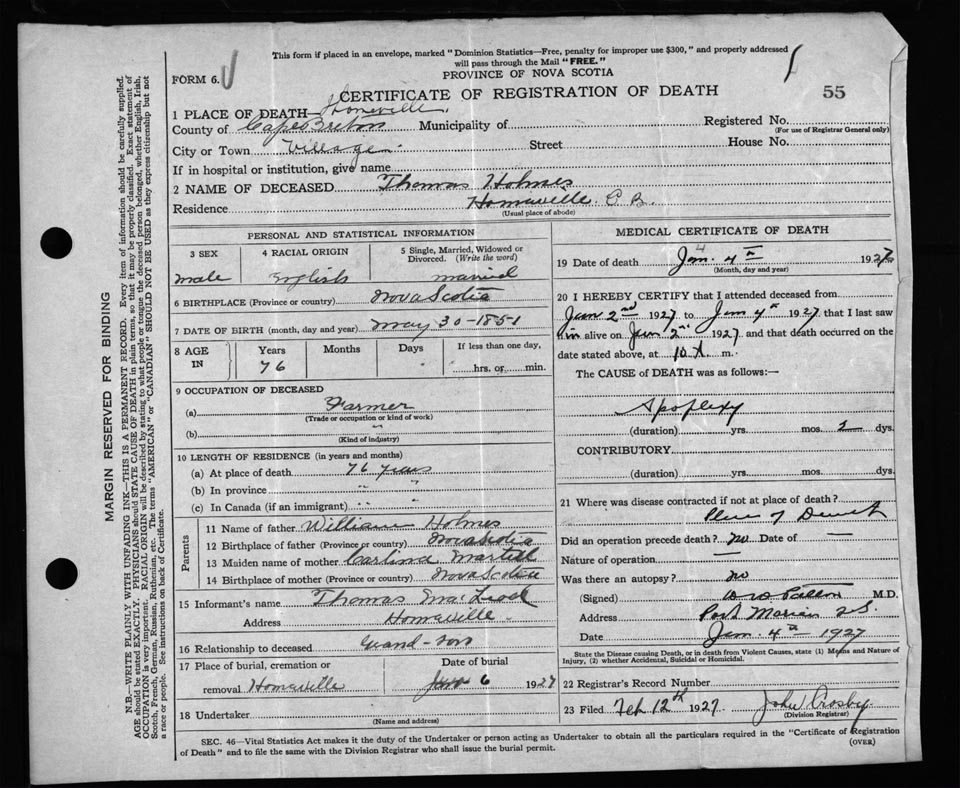 This form if placed in an envelope, marked "Dominion Statistics—Free, penalty for improper use $300," and properly addressed
will pass through the Mail "FREE."
FORM 6.
PROVINCE OF NOVA SCOTIA
CERTIFICATE OF REGISTRATION OF DEATH
55
1 PLACE OF DEATH—Homeville
County of Cape Breton Municipality of Registered No.
(For use of Registrar General only)
City or Town Village Street House No.
If in hospital or institution, give name
2 NAME OF DECEASED Thomas Holmes
Residence Homeville C B.
(Usual place of abode)
PERSONAL AND STATISTICAL INFORMATION
3 SEX 4 RACIAL ORIGIN 5 Single, Married, Widowed or
Divorced. (Write the word)
male English married
6 BIRTHPLACE (Province or country) Nova Scotia
7 DATE OF BIRTH (month, day and year) May 30-1851
8 AGE IN Years Months Days If less than one day,
76 hrs. or min.
9 OCCUPATION OF DECEASED
(a) Farmer
(Trade or occupation or kind of work)
(b) "
(Kind of industry)
10 LENGTH OF RESIDENCE (in years and months)
(a) At place of death 76 years
(b) In province " "
(c) In Canada (if an immigrant) " "
Parents
11 Name of father William Holmes
12 Birthplace of father (Province or country) Nova Scotia
13 Maiden name of mother Carline Martell
14 Birthplace of mother (Province or country) Nova Scotia
15 Informant's name Thomas MacLeod
Address Homeville
16 Relationship to deceased Grand-son
17 Place of burial, cremation or Date of burial
removal Homeville Jan 6 1927
18 Undertaker
(Name and address)
MEDICAL CERTIFICATE OF DEATH
19 Date of death Jan. 4th 1927
(Month, day and year)
20 I HEREBY CERTIFY that I attended deceased from
Jan 2nd 1927 to Jan 4th 1927 that I last saw
him alive on Jan 2nd 1927 and that death occurred on
date stated above, at 10 m.
The CAUSE of DEATH was as follows:—
Apoplexy
(duration) yrs. mos. 2 dys.
CONTRIBUTORY
(duration) yrs. mos. dys.
21 Where was disease contracted if not at place of death?
Place of Death
Did an operation precede death? no Date of —
Nature of operation —
Was there an autopsy? no
(Signed) Patten M.D.
Address Port Morien N.S.
Date Jan. 4th 1927
State the Disease causing Death, or in death from Violent Causes, state (1) Means and Nature of
Injury, (2) whether Accidental, Suicidal or Homicidal.
22 Registrar's Record Number
23 Filed Feb 12th 1927 John Crosby
(Division Registrar)
SEC. 46—Vital Statistics Act makes it the duty of the Undertaker or person acting as Undertaker to obtain all the particulars required in the "Certificate of Registration
of Death" and to file the same with the Division Registrar who shall issue the burial permit.
(OVER)
MARGIN RESERVED FOR BINDING
N.B.—WRITE PLAINLY WITH UNFADING INK—THIS IS A PERMANENT RECORD. Every item of information should be carefully supplied.
AGE should be stated EXACTLY. PHYSICIANS should STATE CAUSE OF DEATH in plain terms, so that it may be properly classified. Exact statement of
OCCUPATION is very important. RACIAL ORIGIN will be described by stating to what people or tongue the deceased person belonged, whether English, Irish,
Scotch, French, German, Russian, Ruthenian, etc. The terms "AMERICAN" or "CANADIAN" SHOULD NOT BE USED as they express citizenship but not
a race or people. See instructions on back of Certificate.